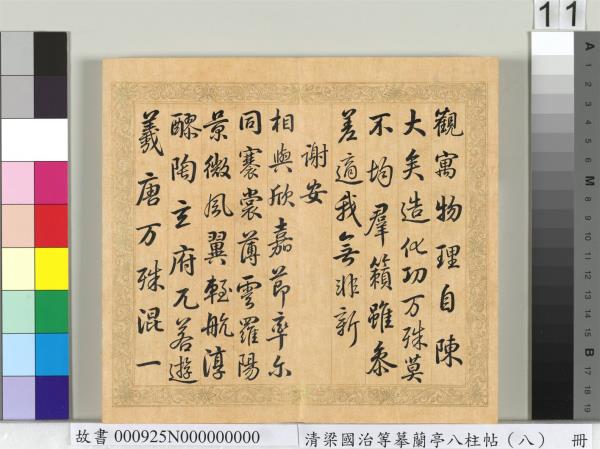 11
觀寓物理自陳
大矣造化功万殊莫
不均羣籟雖參
差適我無非新
謝安
相與欣嘉節率尔
同褰裳薄雲羅陽
景微風翼輕航淳
醪陶玄府兀若遊
羲唐万殊混一
A 1 2 3 4 5 6 M 8 9 10 11 12 13 14 15 B 17 18 19
故書 000925N000000000
清梁國治等摹蘭亭八柱帖（八） 冊